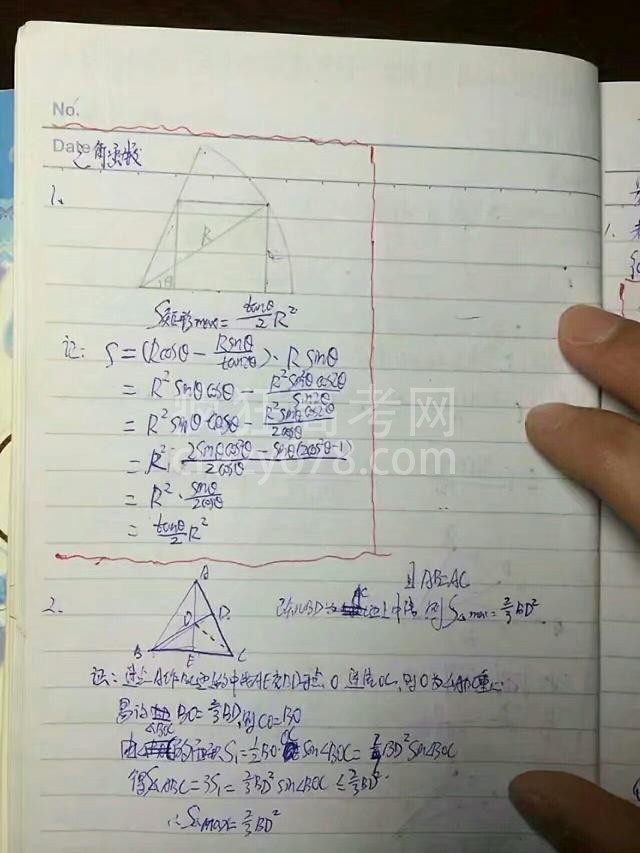 No.
Date 三角函数
1、
R
θ
S矩形max = tanθ/2 R²
证: S = (Rcosθ - Rsinθ/tan2θ)·Rsinθ
= R²sinθcosθ - R²sin²θcos2θ/sin2θ
= R²sinθcosθ - R²sinθcos2θ/2cosθ
= R²·2sinθcos²θ - sinθ(2cos²θ-1)/2cosθ
= R²·sinθ/2cosθ
= tanθ/2 R²
且AB=AC
2、
A
D
O
B
E
C
已知BD为AC边上中线 则S△max = 2/3 BD²
证: 过点A作BC边的中线AE交BD于点O 连接OC, 则O为△ABC重心
易得 BO = 2/3 BD, 则CO = BO
的面积S₁ = 1/2 BO·OC sin∠BOC = 2/9 BD² sin∠BOC
得S△ABC = 3S₁ = 2/3 BD² sin∠BOC ≤ 2/3 BD²
∴S△max = 2/3 BD²